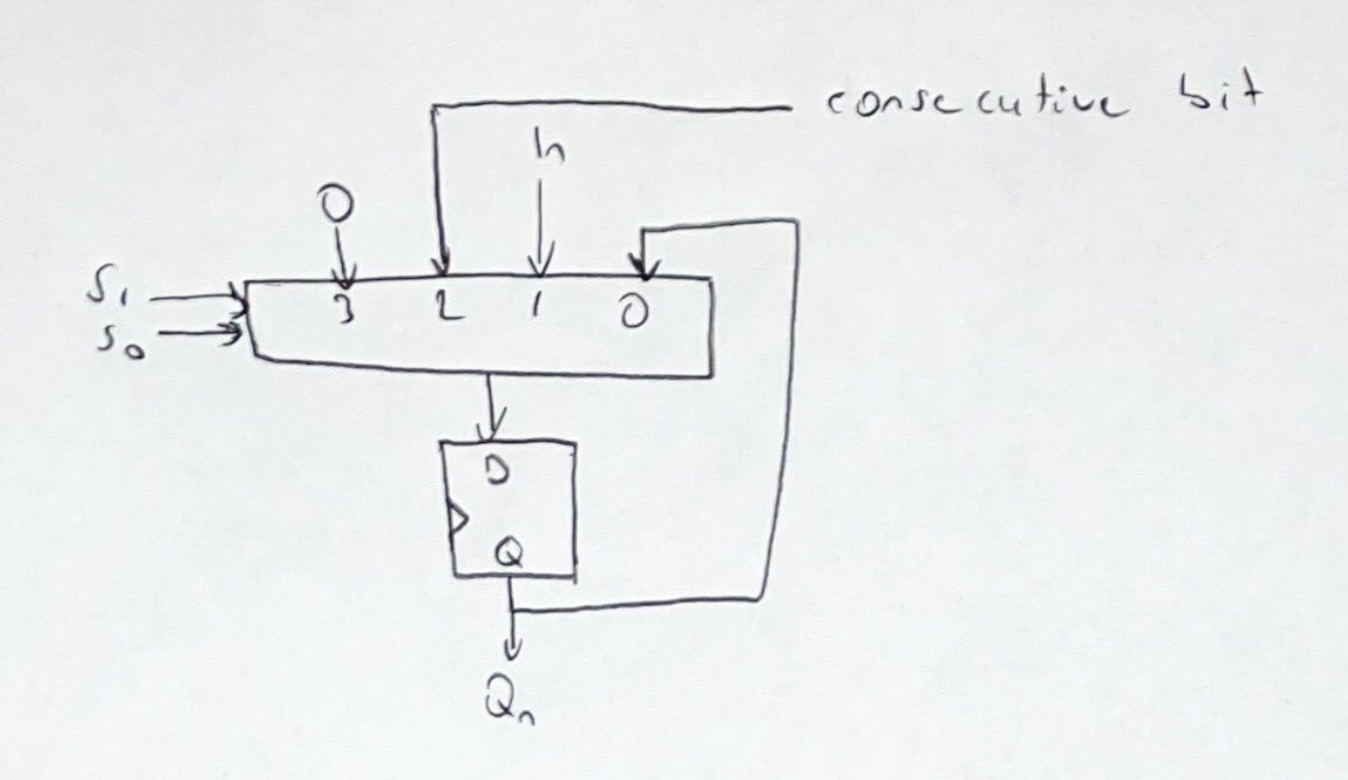 consecutive bit
In
0
S1
S0
3 2 1 0
D
Q
Qn